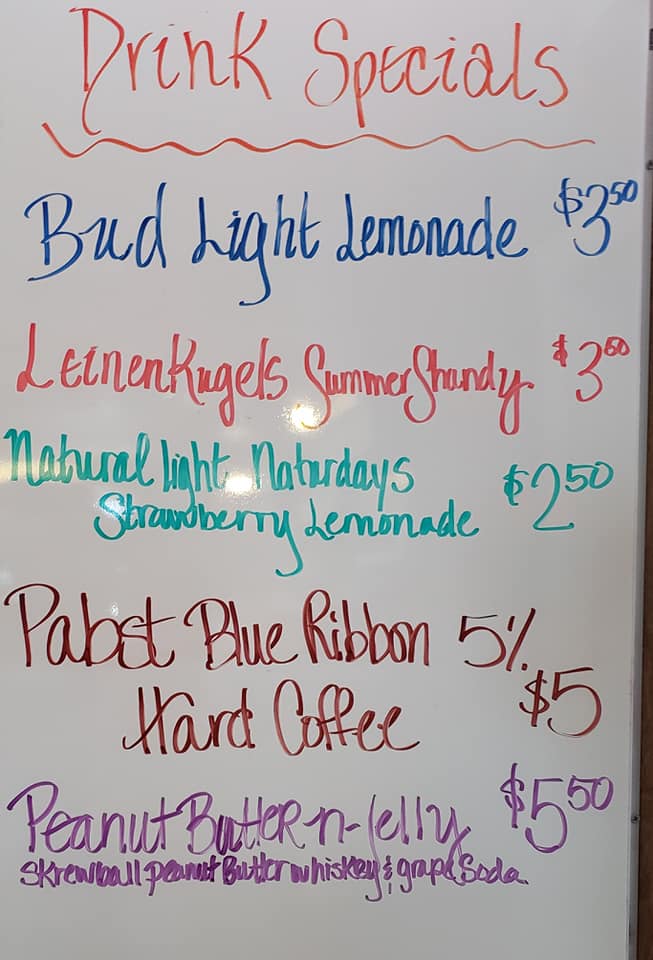 Drink Specials
Bud Light Lemonade $3.50
Leinenkugels Summer Shandy $3.50
Natural light Naturdays
Strawberry Lemonade $2.50
Pabst Blue Ribbon 5%
Hard Coffee $5
Peanut Butter-n-Jelly $5.50
Skrewball peanut Butter whiskey & grape Soda